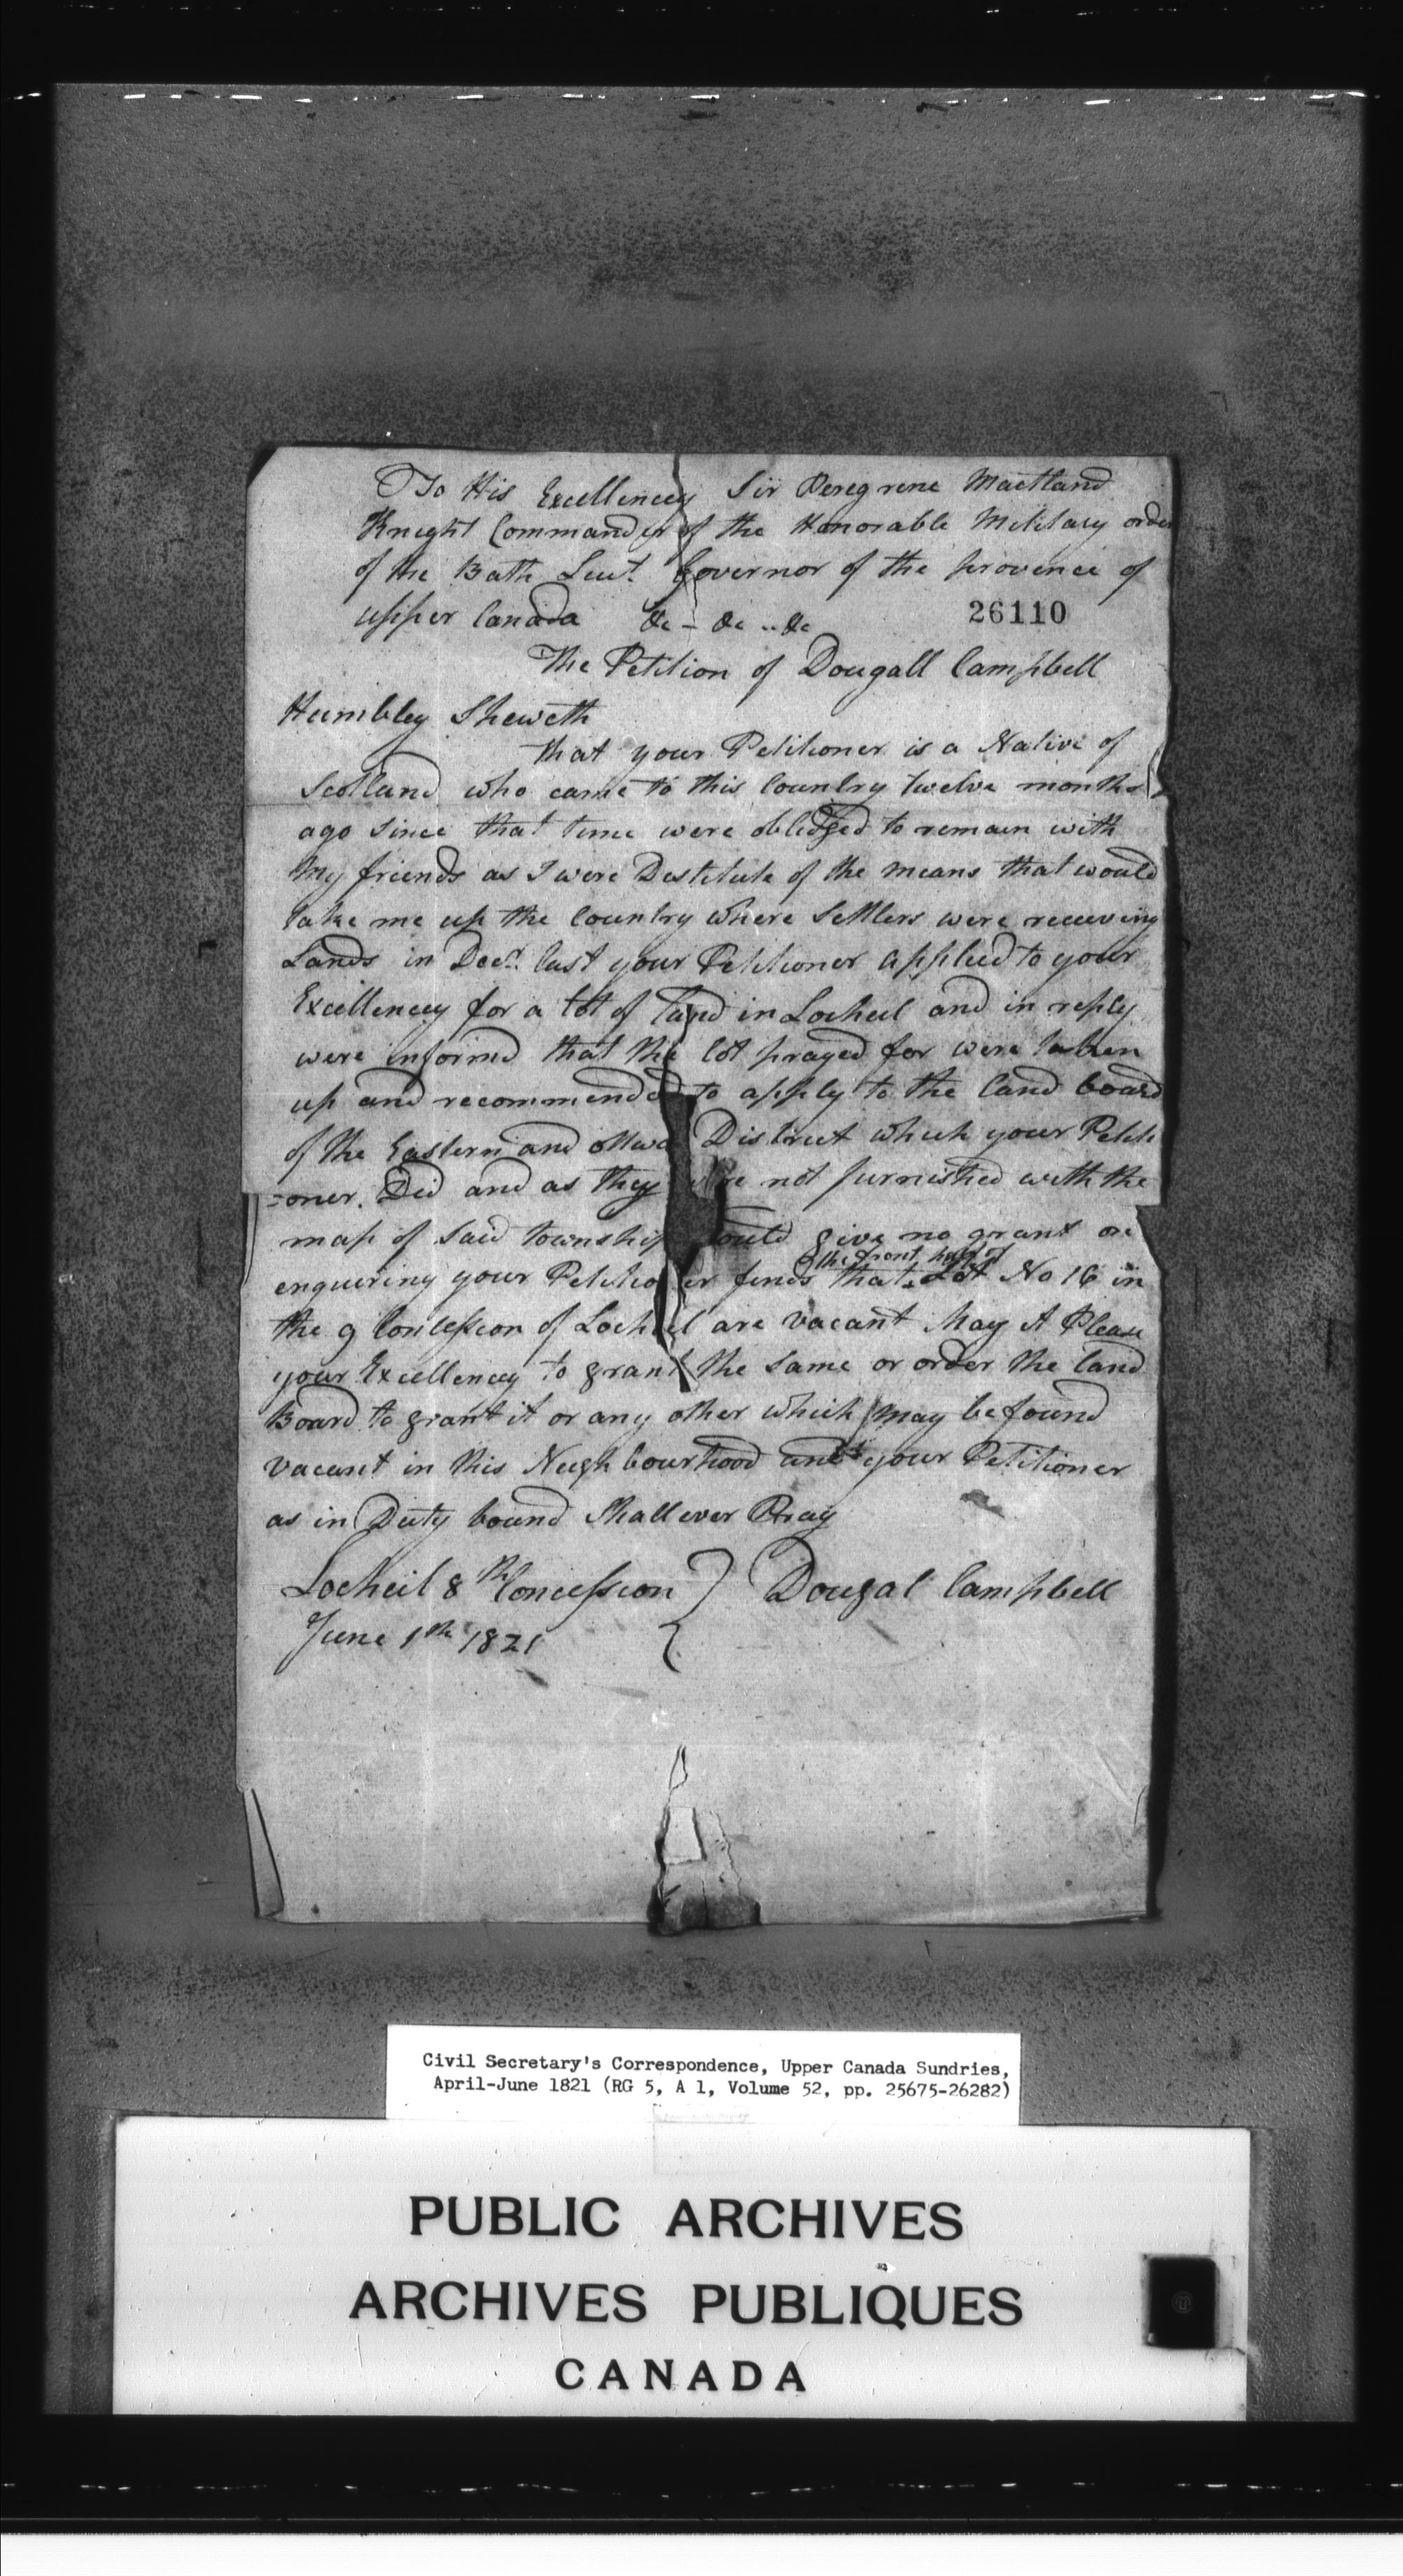 To His Excellencey Sir Peregrene Maetland
Knight Commander of the Honorable Military order
of the Bath Leut. Governor of the provence of
upper Canada &c - &c .. &c
26110
The Petition of Dougall Campbell
Humbley Sheweth
that your Petitioner is a Native of
Scotland who came to this Country twelve months
ago since that time were obledged to remain with
my friends as I were Destitute of the means that would
take me up the Country where Settlers were receeving
Lands in Decr. last your Petitioner applied to your
Excellencey for a lot of land in Locheil and in reply
were informd that the lot prayed for were taken
up and recommended to apply to the land board
of the Eastern and ottwa District which your Petiti
=oner. Did and as they were not furnished with the
map of said township could give no grant on
enquiring your Petitioner finds that the front half of Lot No 16 in
the 9 Concession of Locheil are vacant May it Please
your Excellencey to grant the same or order the land
Board to grant it or any other which may be found
vacant in this Neighbourhood and your Petitioner
as in Duty bound Shall ever Pray
Locheil 8th Concession } Dougal Campbell
June 1th 1821
Civil Secretary's Correspondence, Upper Canada Sundries,
April-June 1821 (RG 5, A 1, Volume 52, pp. 25675-26282)
PUBLIC ARCHIVES
ARCHIVES PUBLIQUES
CANADA